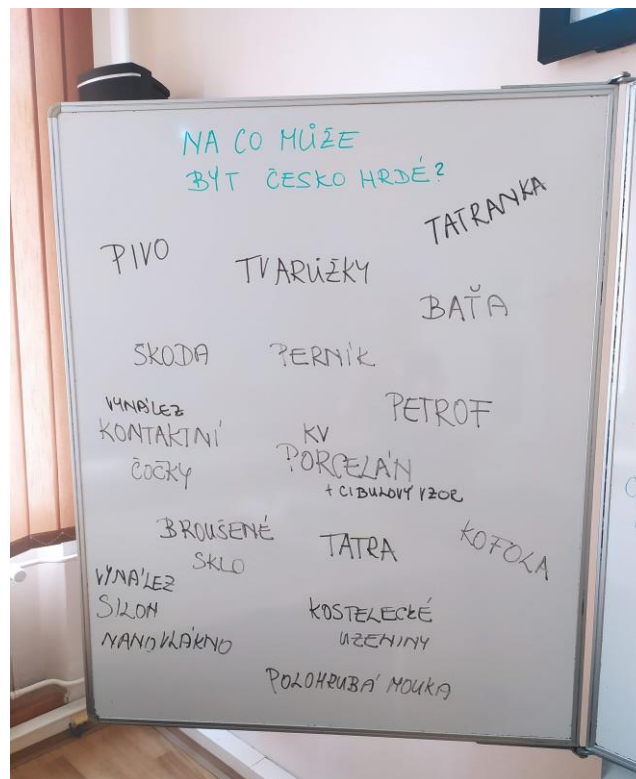 NA CO MŮŽE
BÝT ČESKO HRDÉ?
TATRANKA
PIVO
TVARŮŽKY
BAŤA
ŠKODA
PERNÍK
PETROF
VYNÁLEZ
KONTAKTNÍ
ČOČKY
KV
PORCELÁN
+ CIBULOVÝ VZOR
BROUŠENÉ
SKLO
TATRA
KOFOLA
VYNÁLEZ
SILON
NANOVLÁKNO
KOSTELECKÉ
UZENINY
POLOHRUBÁ MOUKA